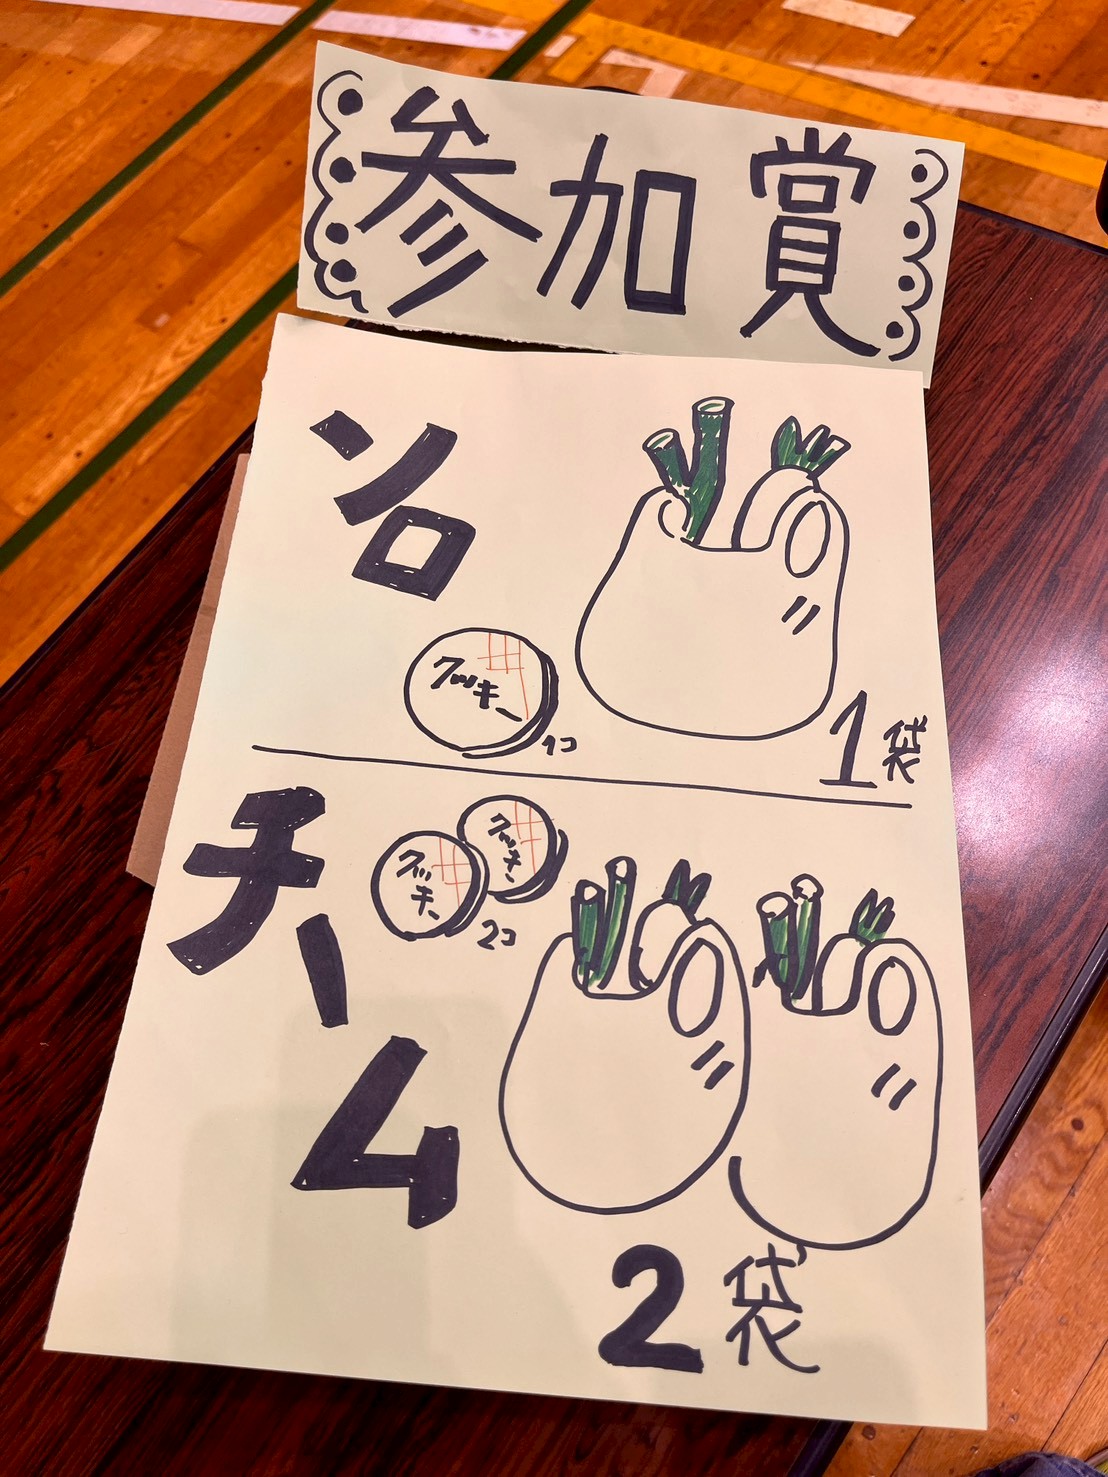 参加賞
ソロ
クッキー
1コ
1袋
チーム
クッキー
クッキー
2コ
2袋